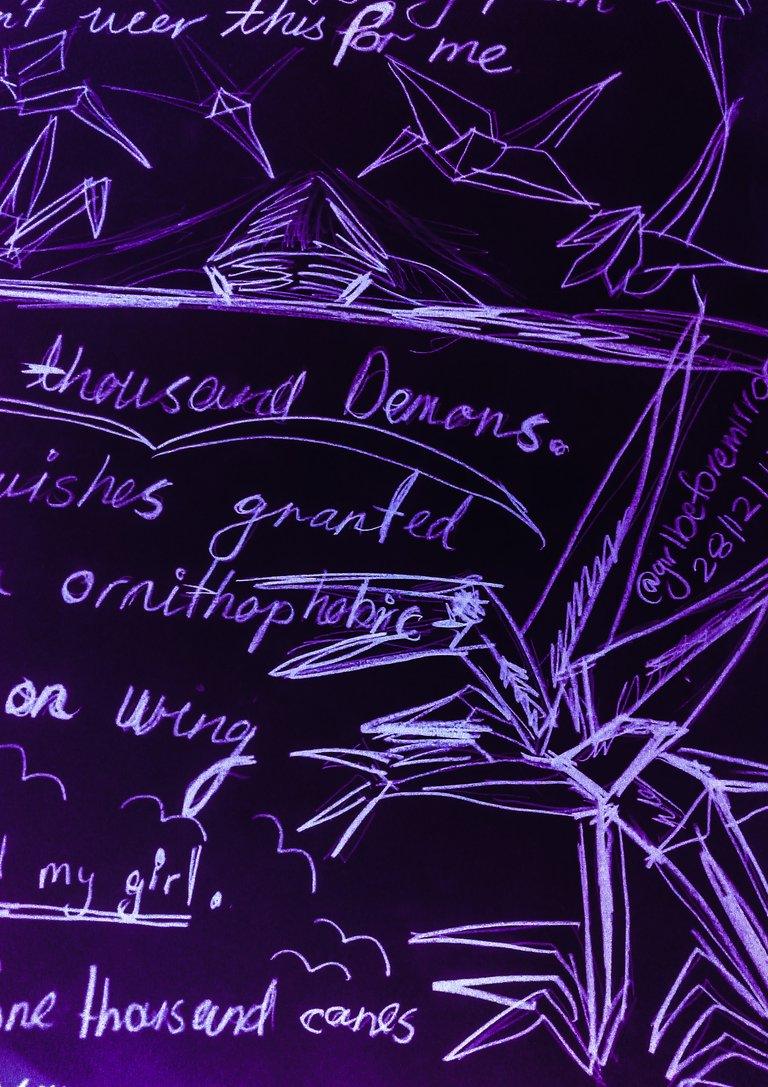 n't this for me
thousand Demons.
wishes granted
ornithophobic
on wing
my girl.
ne thousand canes
@girlbeforemirro
28/12/1